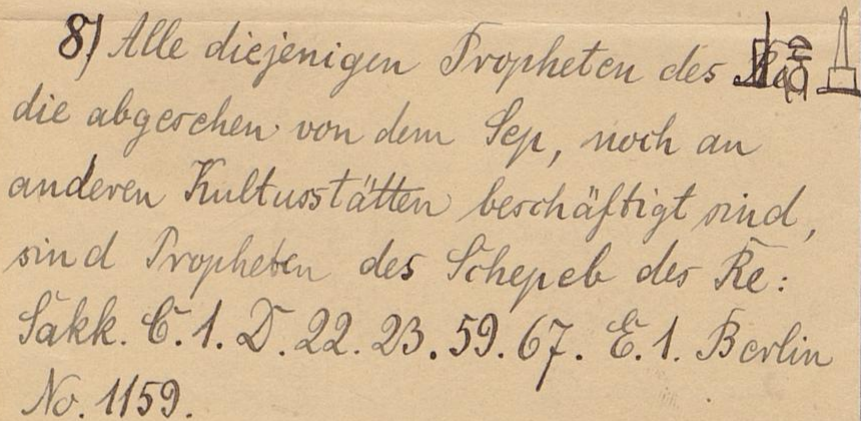 8) Alle diejenigen Propheten des
die abgesehen von dem Sep, noch an
anderen Kultusstätten beschäftigt sind,
sind Propheten des Schepeb des Re:
Sakk. C. 1. D. 22. 23. 59. 67. E. 1. Berlin
No. 1159.